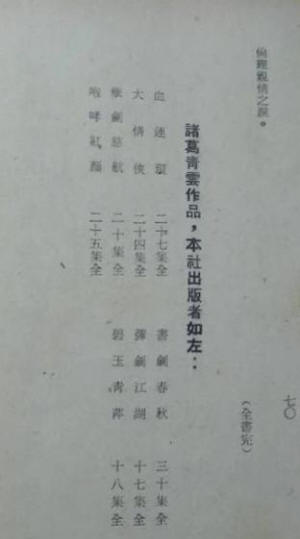 倫理親情之淚。
(全書完)
七〇
諸葛青雲作品，本社出版者如左：
血連環 二十七集全 書劍春秋 三十集全
大情俠 二十四集全 彈劍江湖 十七集全
劍慈航 二十集全 碧玉青萍 十八集全
咆哮紅顏 二十五集全